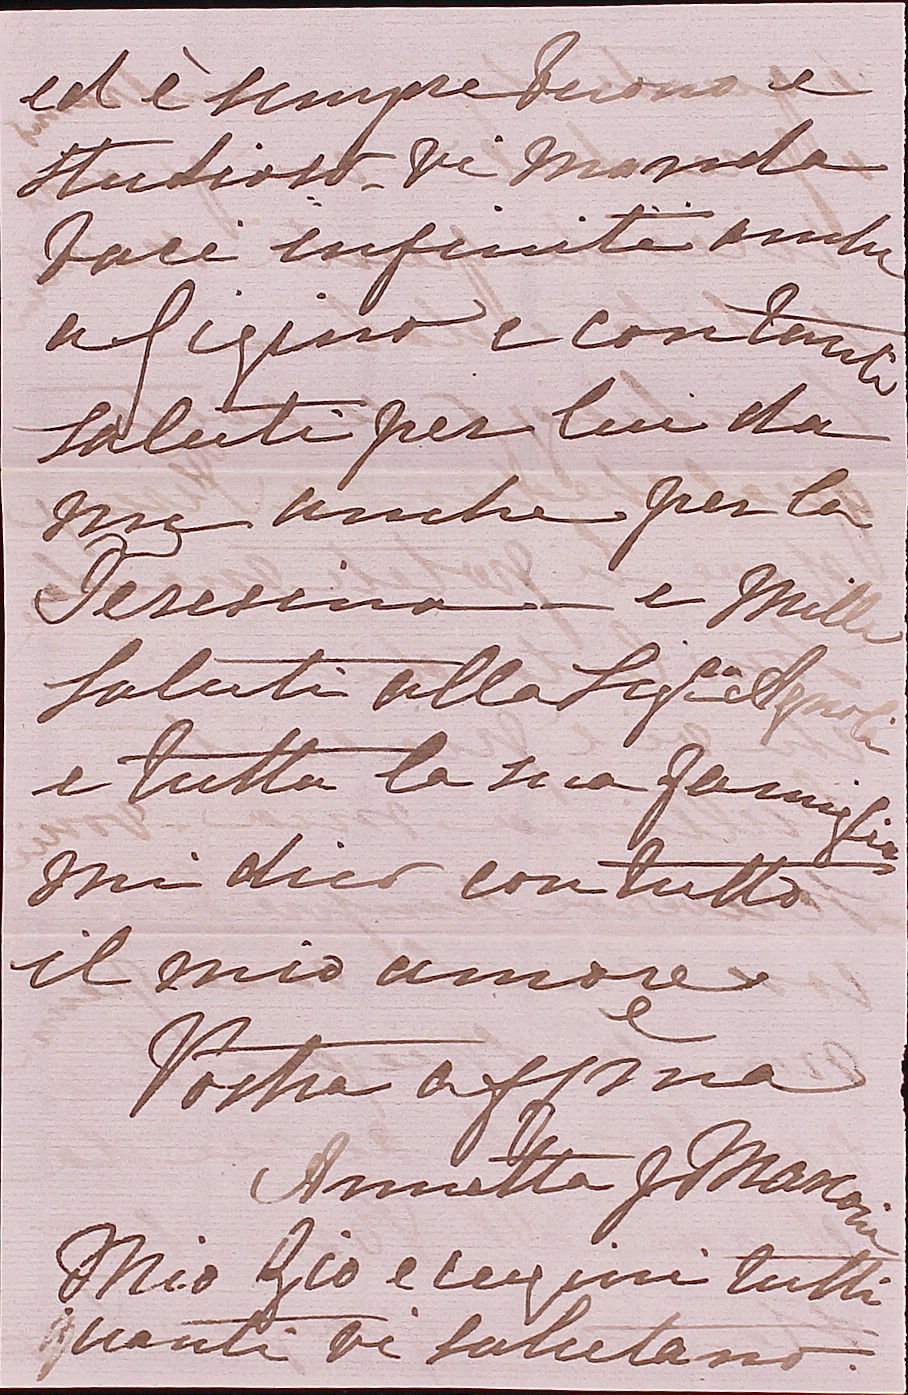 ed è sempre buono e
studioso. Vi manda
baci infiniti anche
a Gigino e con tanti
saluti per lui da
me anche per la
Teresina — e mille
saluti alla Sig.ra Agnoli
e tutta la sua famiglia
mi dico con tutto
il mio amore
Vostra affma
Annetta J Marconi
Mio Zio e cugini tutti
quanti vi salutano.